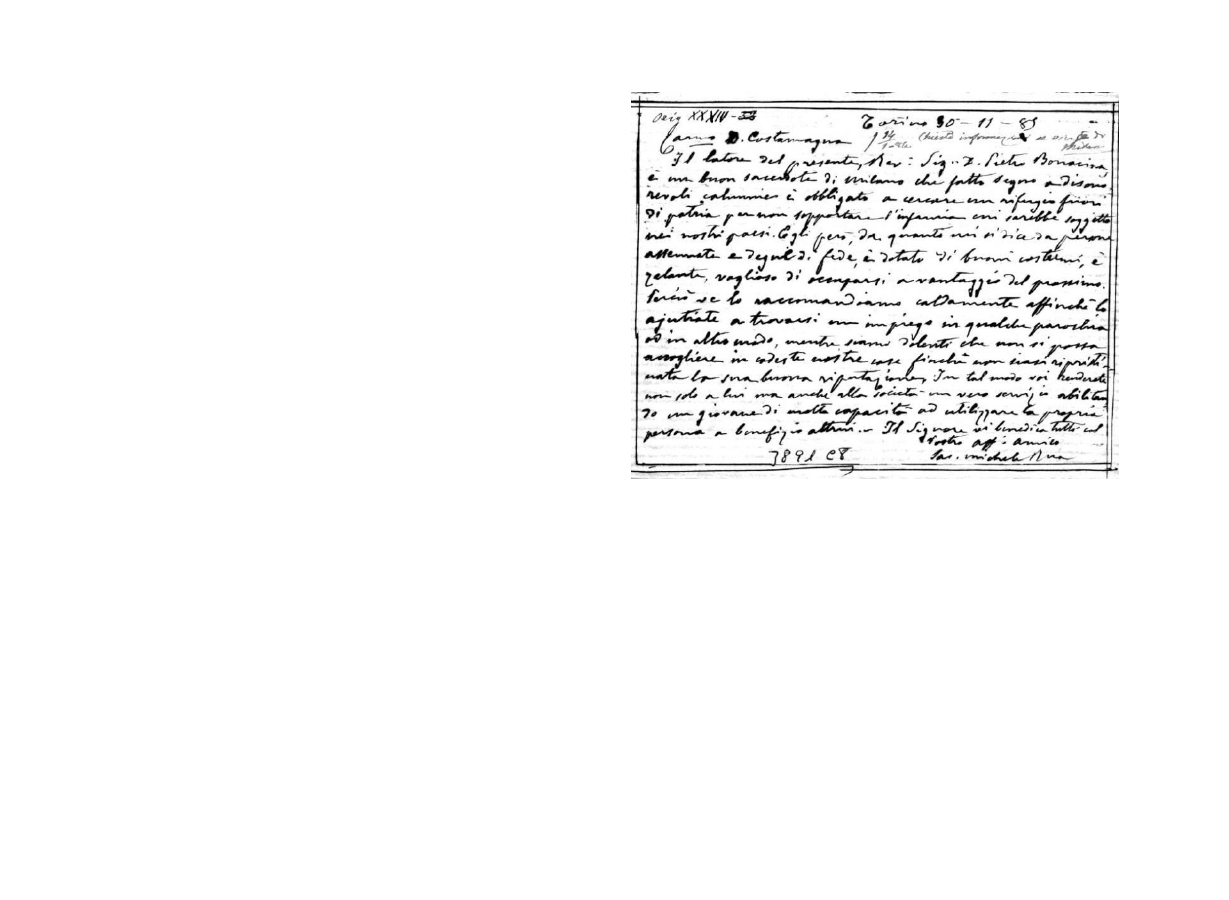 Orig XXXIV-33
Torino 30-11-89
Carmo D. Costamagna
Chieste informazioni
Il latore del presente, Rev: Sig. D. Pietro Bonacina
è un buon sacerdote di Milano che fatto segno a disono
revoli calunnie è obbligato a cercare un rifugio fuori
di patria per non sopportare l'infamia cui sarebbe soggetto
nei nostri paesi. Egli però, da quanto mi si dice da persone
assennate e degne di fede, è dotato di buoni costumi, è
zelante, voglioso di occuparsi a vantaggio del prossimo.
Perciò ve lo raccomandiamo caldamente affinchè lo
ajutiate a trovarsi un impiego in qualche parochia
od in altro modo, mentre siamo dolenti che non si possa
accogliere in codeste nostre case finchè non siasi ripristi-
nata la sua buona riputazione. In tal modo voi renderete
non solo a lui ma anche alla Società un vero servizio abilitan
do un giovane di molta capacità ad utilizzare la propria
persona a benefizio altrui. Il Signore vi benedica tutti col
Vostro aff. amico
3891 C8
Sac. Michele Rua